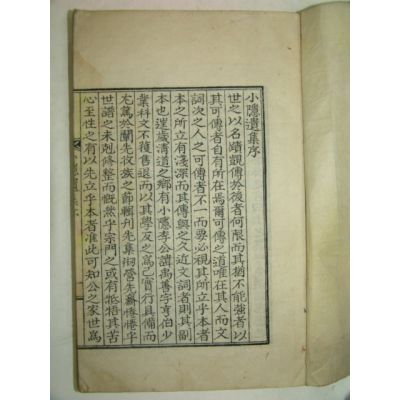 小隱遺集序
世之以名蹟覬傳於後者何限而其猶不能強者以
其可傳者自有所在焉爾可傳之道唯在其人而文
詞次之人之可傳者不一而要必視其所立乎本者
本之所立有淺深而其傳與之久近文詞者則其副
本也達歲淸道之鄉有小隱李公諱禹善字 伯少
業科文不復售退而以其學及之爲己實行具備而
尤篤於蘭先攸族之節輯刊先集 營先 惓惓乎
世譜之未剋修整而慨然乎宗門之或有牴牾其苦
心至性之有以先立乎本者准此可知公之家世爲